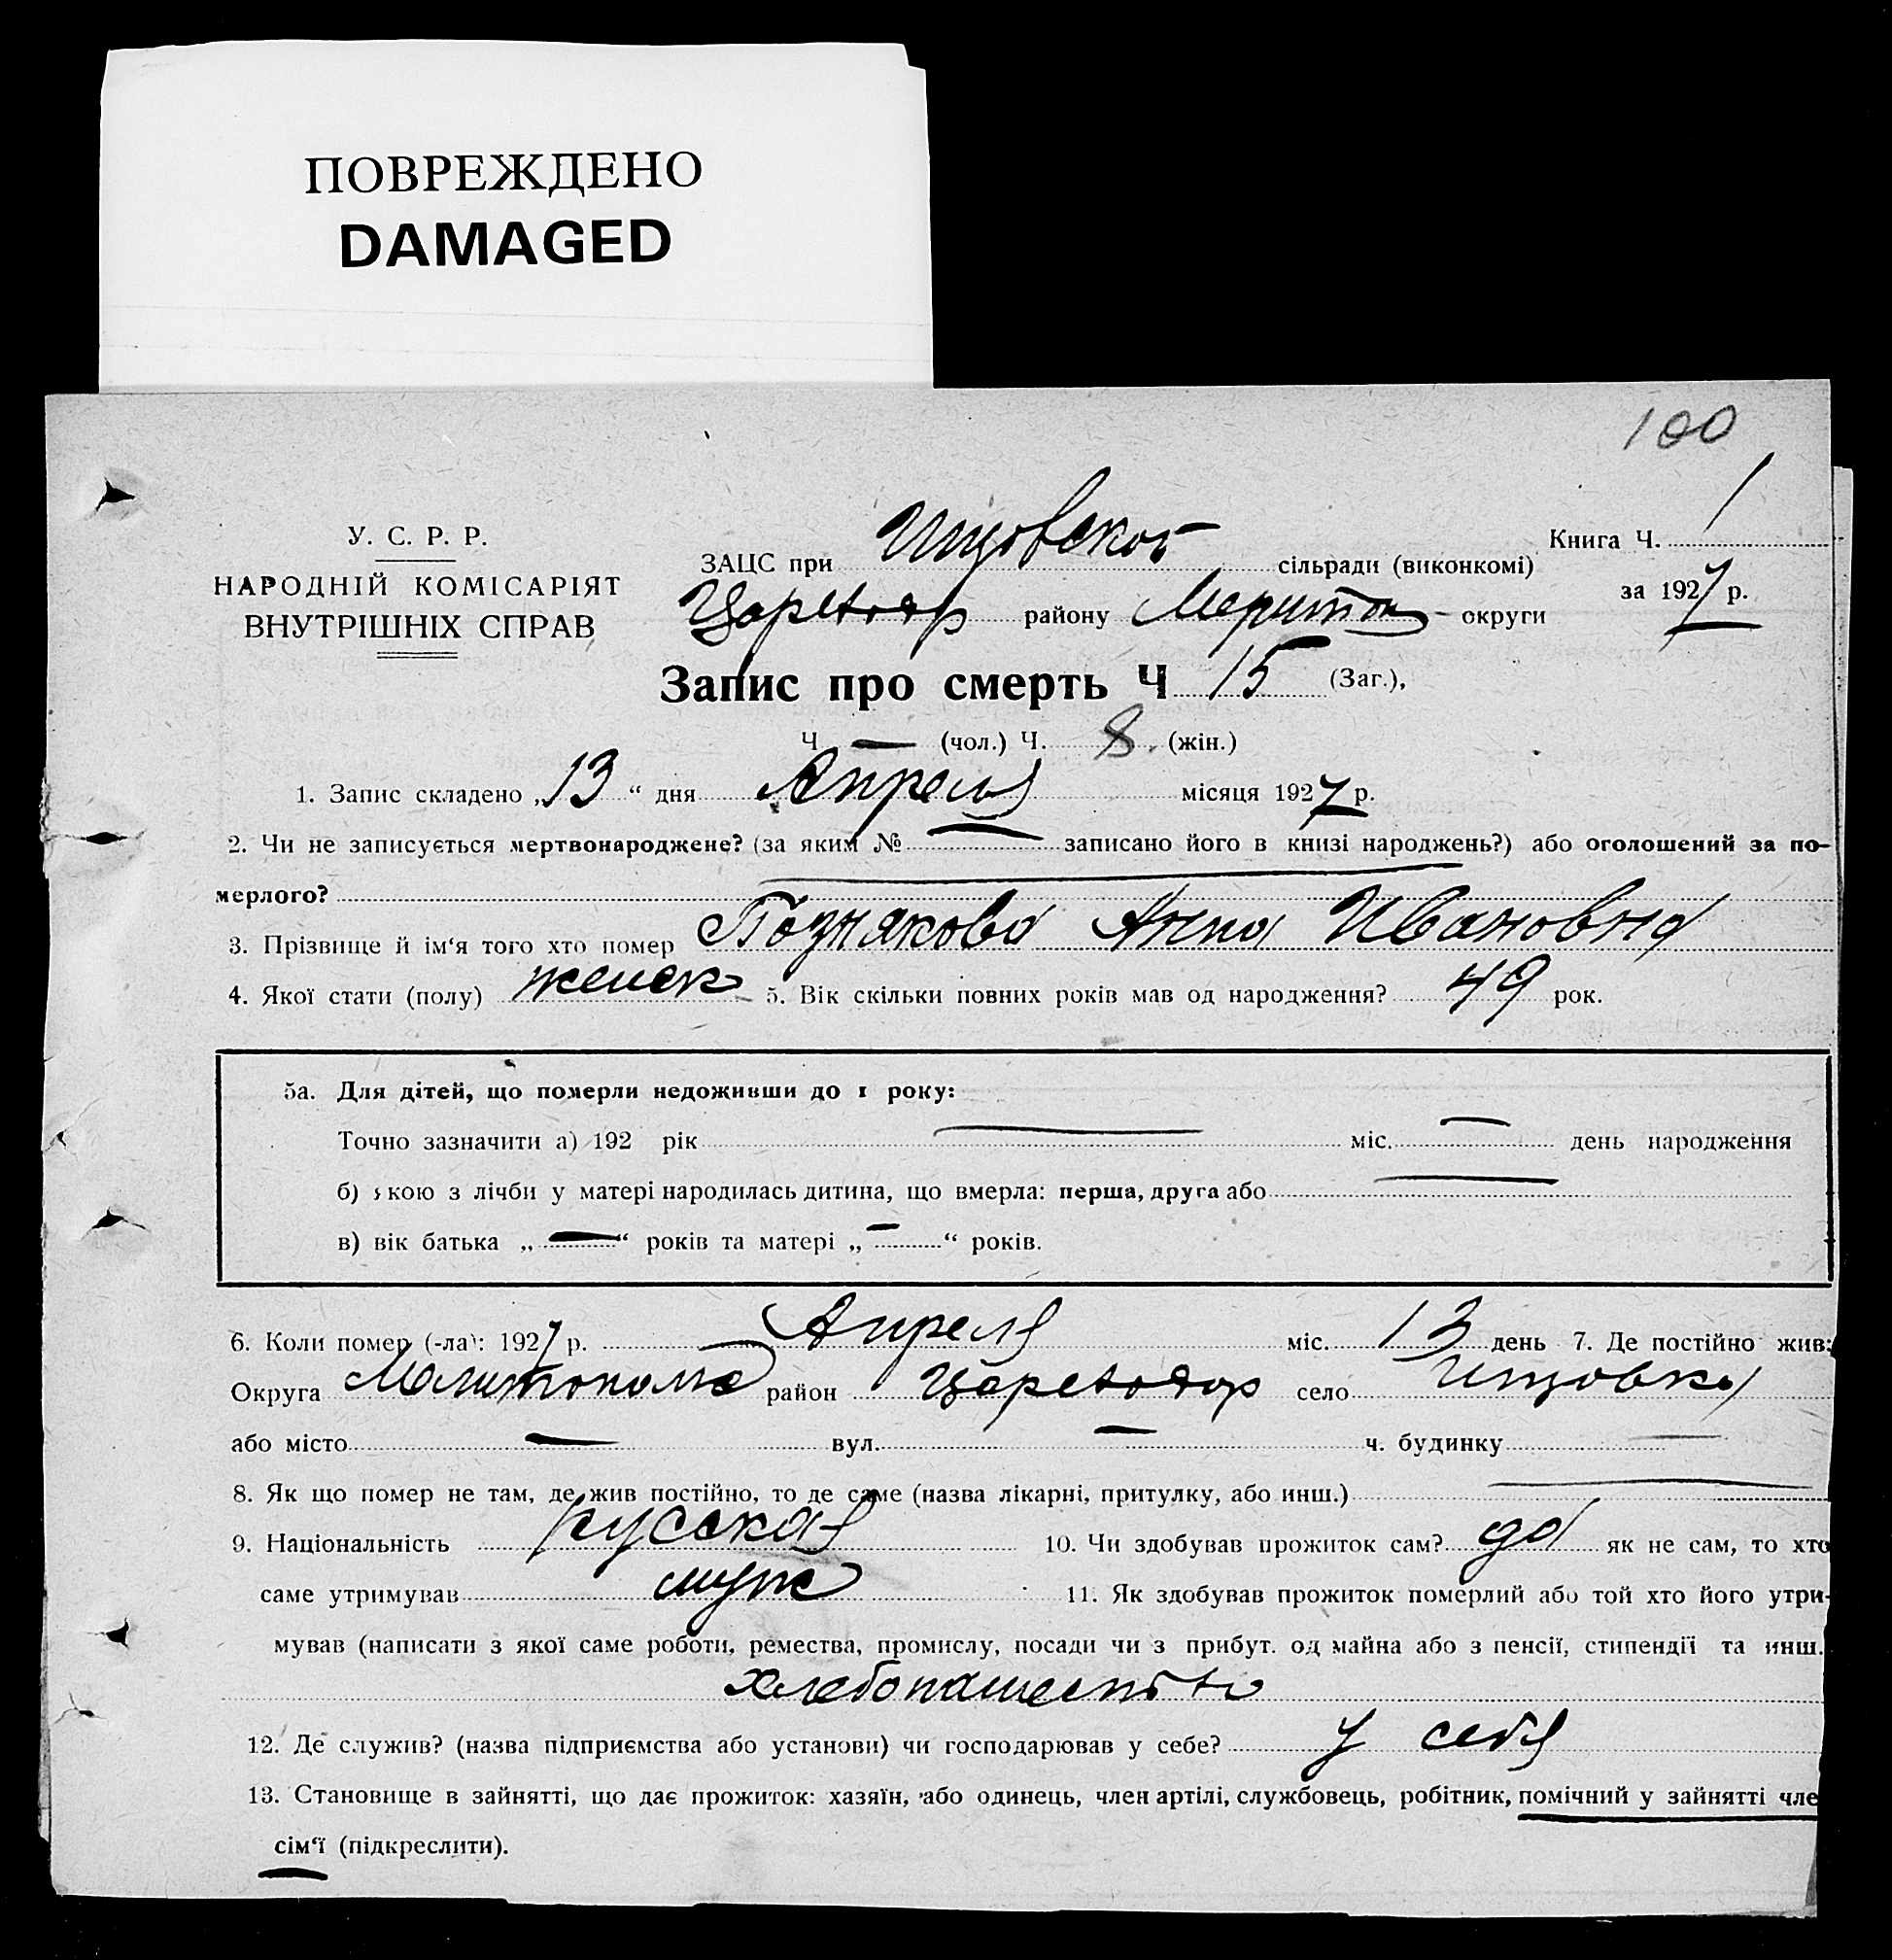 ПОВРЕЖДЕНО
DAMAGED
100
У. С. Р. Р.
НАРОДНІЙ КОМІСАРІЯТ
ВНУТРІШНІХ СПРАВ
ЗАЦС при сільради (виконкомі)
району округи
Книга Ч. 1
за 1927 р.
Запис про смерть Ч 15 (Заг.),
Ч — (чол.) Ч. 8 (жін.)
1. Запис складено „13“ дня Апреля місяця 1927 р.
2. Чи не записується мертвонароджене? (за яким № — записано його в книзі народжень?) або оголошений за по-
мерлого? —
3. Прізвище й ім‘я того хто помер Познякова Анна Ивановна
4. Якої стати (полу) женск 5. Вік скільки повних років мав од народження? 49 рок.
5а. Для дітей, що померли недоживши до 1 року:
Точно зазначити а) 192 рік — міс. — день народження
б) якою з лічби у матері народилась дитина, що вмерла: перша, друга або —
в) вік батька „—“ років та матері „—“ років.
6. Коли помер (-ла): 1927 р. Апреля міс. 13 день 7. Де постійно жив:
Округа район село
або місто — вул. — ч. будинку —
8. Як що помер не там, де жив постійно, то де саме (назва лікарні, притулку, або инш.) —
9. Національність русская 10. Чи здобував прожиток сам? да як не сам, то хто
саме утримував муж 11. Як здобував прожиток померлий або той хто його утри-
мував (написати з якої саме роботи, ремества, промислу, посади чи з прибут. од майна або з пенсії, стипендії та инш.
хлебопашество
12. Де служив? (назва підприємства або установи) чи господарював у себе? у себя
13. Становище в зайнятті, що дає прожиток: хазяїн, або одинець, член артілі, службовець, робітник, помічний у зайнятті чле
сім‘ї (підкреслити).